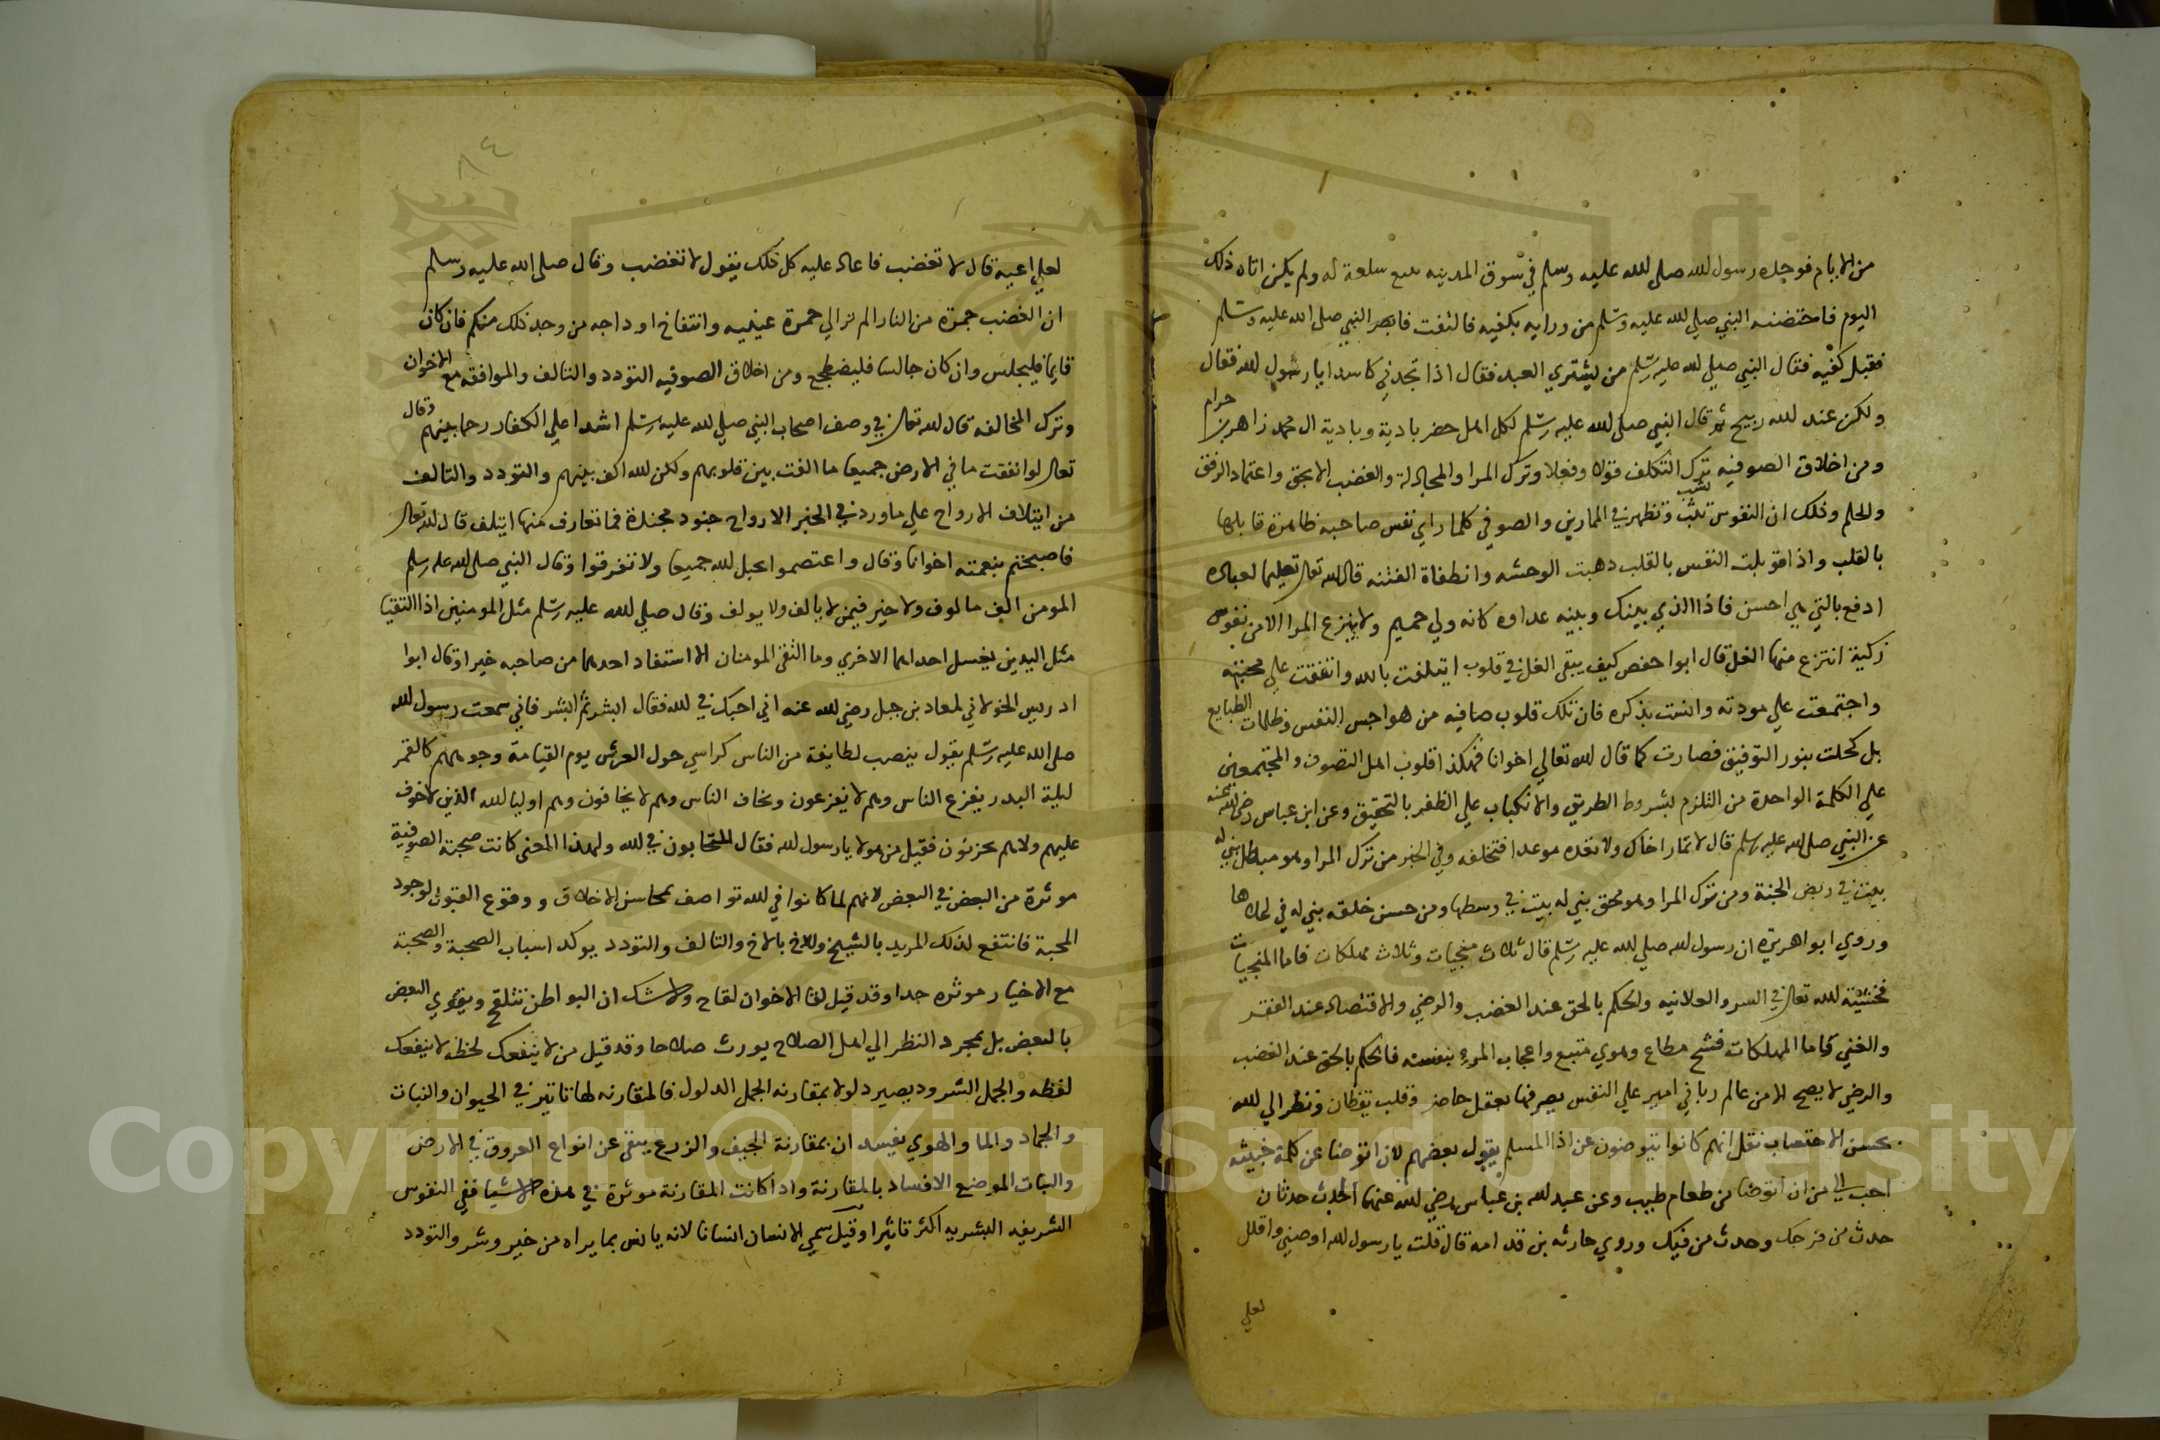 من الايام فوجده رسول الله صلى الله عليه وسلم في سوق المدينه يبيع سلعة له ولم يكن اتاه ذلك
اليوم فاحتضنه النبي صلي الله عليه وسلم من ورايه بكفيه فالتفت فابصر النبي صلى الله عليه وسلم
فقبل كفيه فقال النبي صلي الله عليه وسلم من يشتري العبد فقال اذا تجدني كاسدا يا رسول الله فقال
ولكن عند الله ربيح ثم قال النبي صلى الله عليه وسلم لكل اهل حضر بادية وبادية ال محمد زاهر بن حرام
ومن اخلاق الصوفيه ترك التكلف قولا وفعلا وترك المرا والمجادلة والغضب الا بحق واعتماد الرفق
والحلم وذلك ان النفوس تثب وتظهر في الممارين والصوفي كلما راي نفس صاحبه ظاهرة قابلها
بالقلب واذا قوبلت النفس بالقلب ذهبت الوحشه وانطفاة الفتنه قال الله تعالى تعليما لعباده
ادفع بالتي هي احسن فاذا الذي بينك وبينه عداوه كانه ولي حميم ولا ينزع المرا الا من نفوس
زكية انتزع منها الغل قال ابوا حفص كيف يبقى الغل في قلوب ايتلفت بالله واتفقت علي محبته
واجتمعت علي مودته وانست بذكره فان تلك قلوب صافيه من هواجس النفس وظلمات الطبايع
بل كحلت بنور التوفيق فصارت كما قال الله تعالي اخوانا فهكذا قلوب اهل التصوف والمجتمعين
علي الكلمة الواحدة من التلزم بشروط الطريق والانكباب علي الظفر بالتحقيق وعن ابن عباس رضي الله عنه
عن النبي صلى الله عليه وسلم قال لا تمار اخاك ولا تعده موعدا فتخلفه وفي الخبر من ترك المرا وهو مبطل بني له
بيت في ربض الجنة ومن ترك المرا وهو محق بني له بيت في وسطها ومن حسن خلقه بني له في اعلاها
وروي ابوا هريرة ان رسول الله صلي الله عليه وسلم قال ثلاث منجيات وثلاث مهلكات فاما المنجيات
فخشية الله تعالى في السر والعلانيه والحكم بالحق عند الغضب والرضي والاقتصاد عند الفقر
والغني واما المهلكات فشح مطاع وهوي متبع واعجاب المرء بنفسه فالحكم بالحق عند الغضب
والرضي لا يصح الا من عالم رباني امير علي النفس يصرفها بعقل حاضر وقلب يقظان ونظر الي الله
بحسن الاحتساب نقل انهم كانوا يتوضون عن اذا المسلم يقول بعضهم لان اتوضا عن كلمة خبيثه
احب الي من ان اتوضا من طعام طيب وعن عبد الله بن عباس رضي الله عنهما الحدث حدثان
حدث من فرجك وحدث من فيك وروي حارثه بن قدامه قال قلت يا رسول الله اوصيني واقلل
لعلي
٨٤
لعلي اعيه قال لا تغضب فاعاد عليه كل ذلك يقول لا تغضب وقال صلى الله عليه وسلم
ان الغضب جمرة من النار الم تر الي حمرة عينيه وانتفاخ اوداجه من وجد ذلك منكم فان كان
قايما فليجلس وان كان جالسا فليضطجع ومن اخلاق الصوفيه التودد والتالف والموافقه مع الاخوان
وترك المخالفه قال الله تعالى في وصف اصحاب النبي صلي الله عليه وسلم اشدا علي الكفار رحما بينهم وقال
تعالى لو انفقت ما في الارض جميعا ما الفت بين قلوبهم ولكن الله الف بينهم والتودد والتالف
من ايتلاف الارواح علي ما ورد في الخبر الارواح جنود مجندة فما تعارف منها ايتلف قال الله تعالى
فاصبحتم بنعمته اخوانا وقال واعتصموا بحبل الله جميعا ولا تفرقوا وقال النبي صلى الله عليه وسلم
المومن الف مالوف ولا خير فيمن لا يالف ولا يولف وقال صلي الله عليه وسلم مثل المومنين اذا التقيا
مثل اليدين يغسل احداهما الاخري وما التقى المومنان الا استفاد احدهما من صاحبه خيرا وقال ابوا
ادريس الخولاني لمعاد بن جبل رضي الله عنه اني احبك في الله فقال ابشر ثم ابشر فاني سمعت رسول الله
صلى الله عليه وسلم يقول ينصب لطايفة من الناس كراسي حول العرش يوم القيامة وجوههم كالقمر
ليلة البدر يفزع الناس وهم لا يفزعون ويخاف الناس وهم لا يخافون وهم اوليا الله الذين لا خوف
عليهم ولا هم يحزنون فقيل من هولا يا رسول الله فقال المتحابون في الله ولهذا المعنى كانت صحبة الصوفية
موثرة من البعض في البعض لانهم لما كانوا في الله تواصف بمحاسن الاخلاق ووقوع القبول لوجود
المحبة فانتفع لذلك المريد بالشيخ والاخ بالاخ والتالف والتودد يوكد اسباب الصحبة والصحبة
مع الاخيار موثره جدا وقد قيل لقا الاخوان لقاح ولا شك ان البواطن تتلقح ويقوي البعض
بالبعض بل بمجرد النظر الي اهل الصلاح يورث صلاحا وقد قيل من لا ينفعك لحظه لا ينفعك
لفظه والجمل الشرود يصير دلولا بمقارنه الجمل الدلول فالمقارنه لها تاثير في الحيوان والنبات
والجماد والما والهوي يفسد ان بمقارنة الجيف والزرع ينقى عن انواع العروق في الارض
والنبات لموضع الافساد بالمقارنة واذا كانت المقارنة موثرة في هذه الاشيا ففي النفوس
الشريفه البشريه اكثر تاثيرا وقيل سمي الانسان انسانا لانه يانس بما يراه من خير وشر والتودد
Copyright © King Saud University
1957